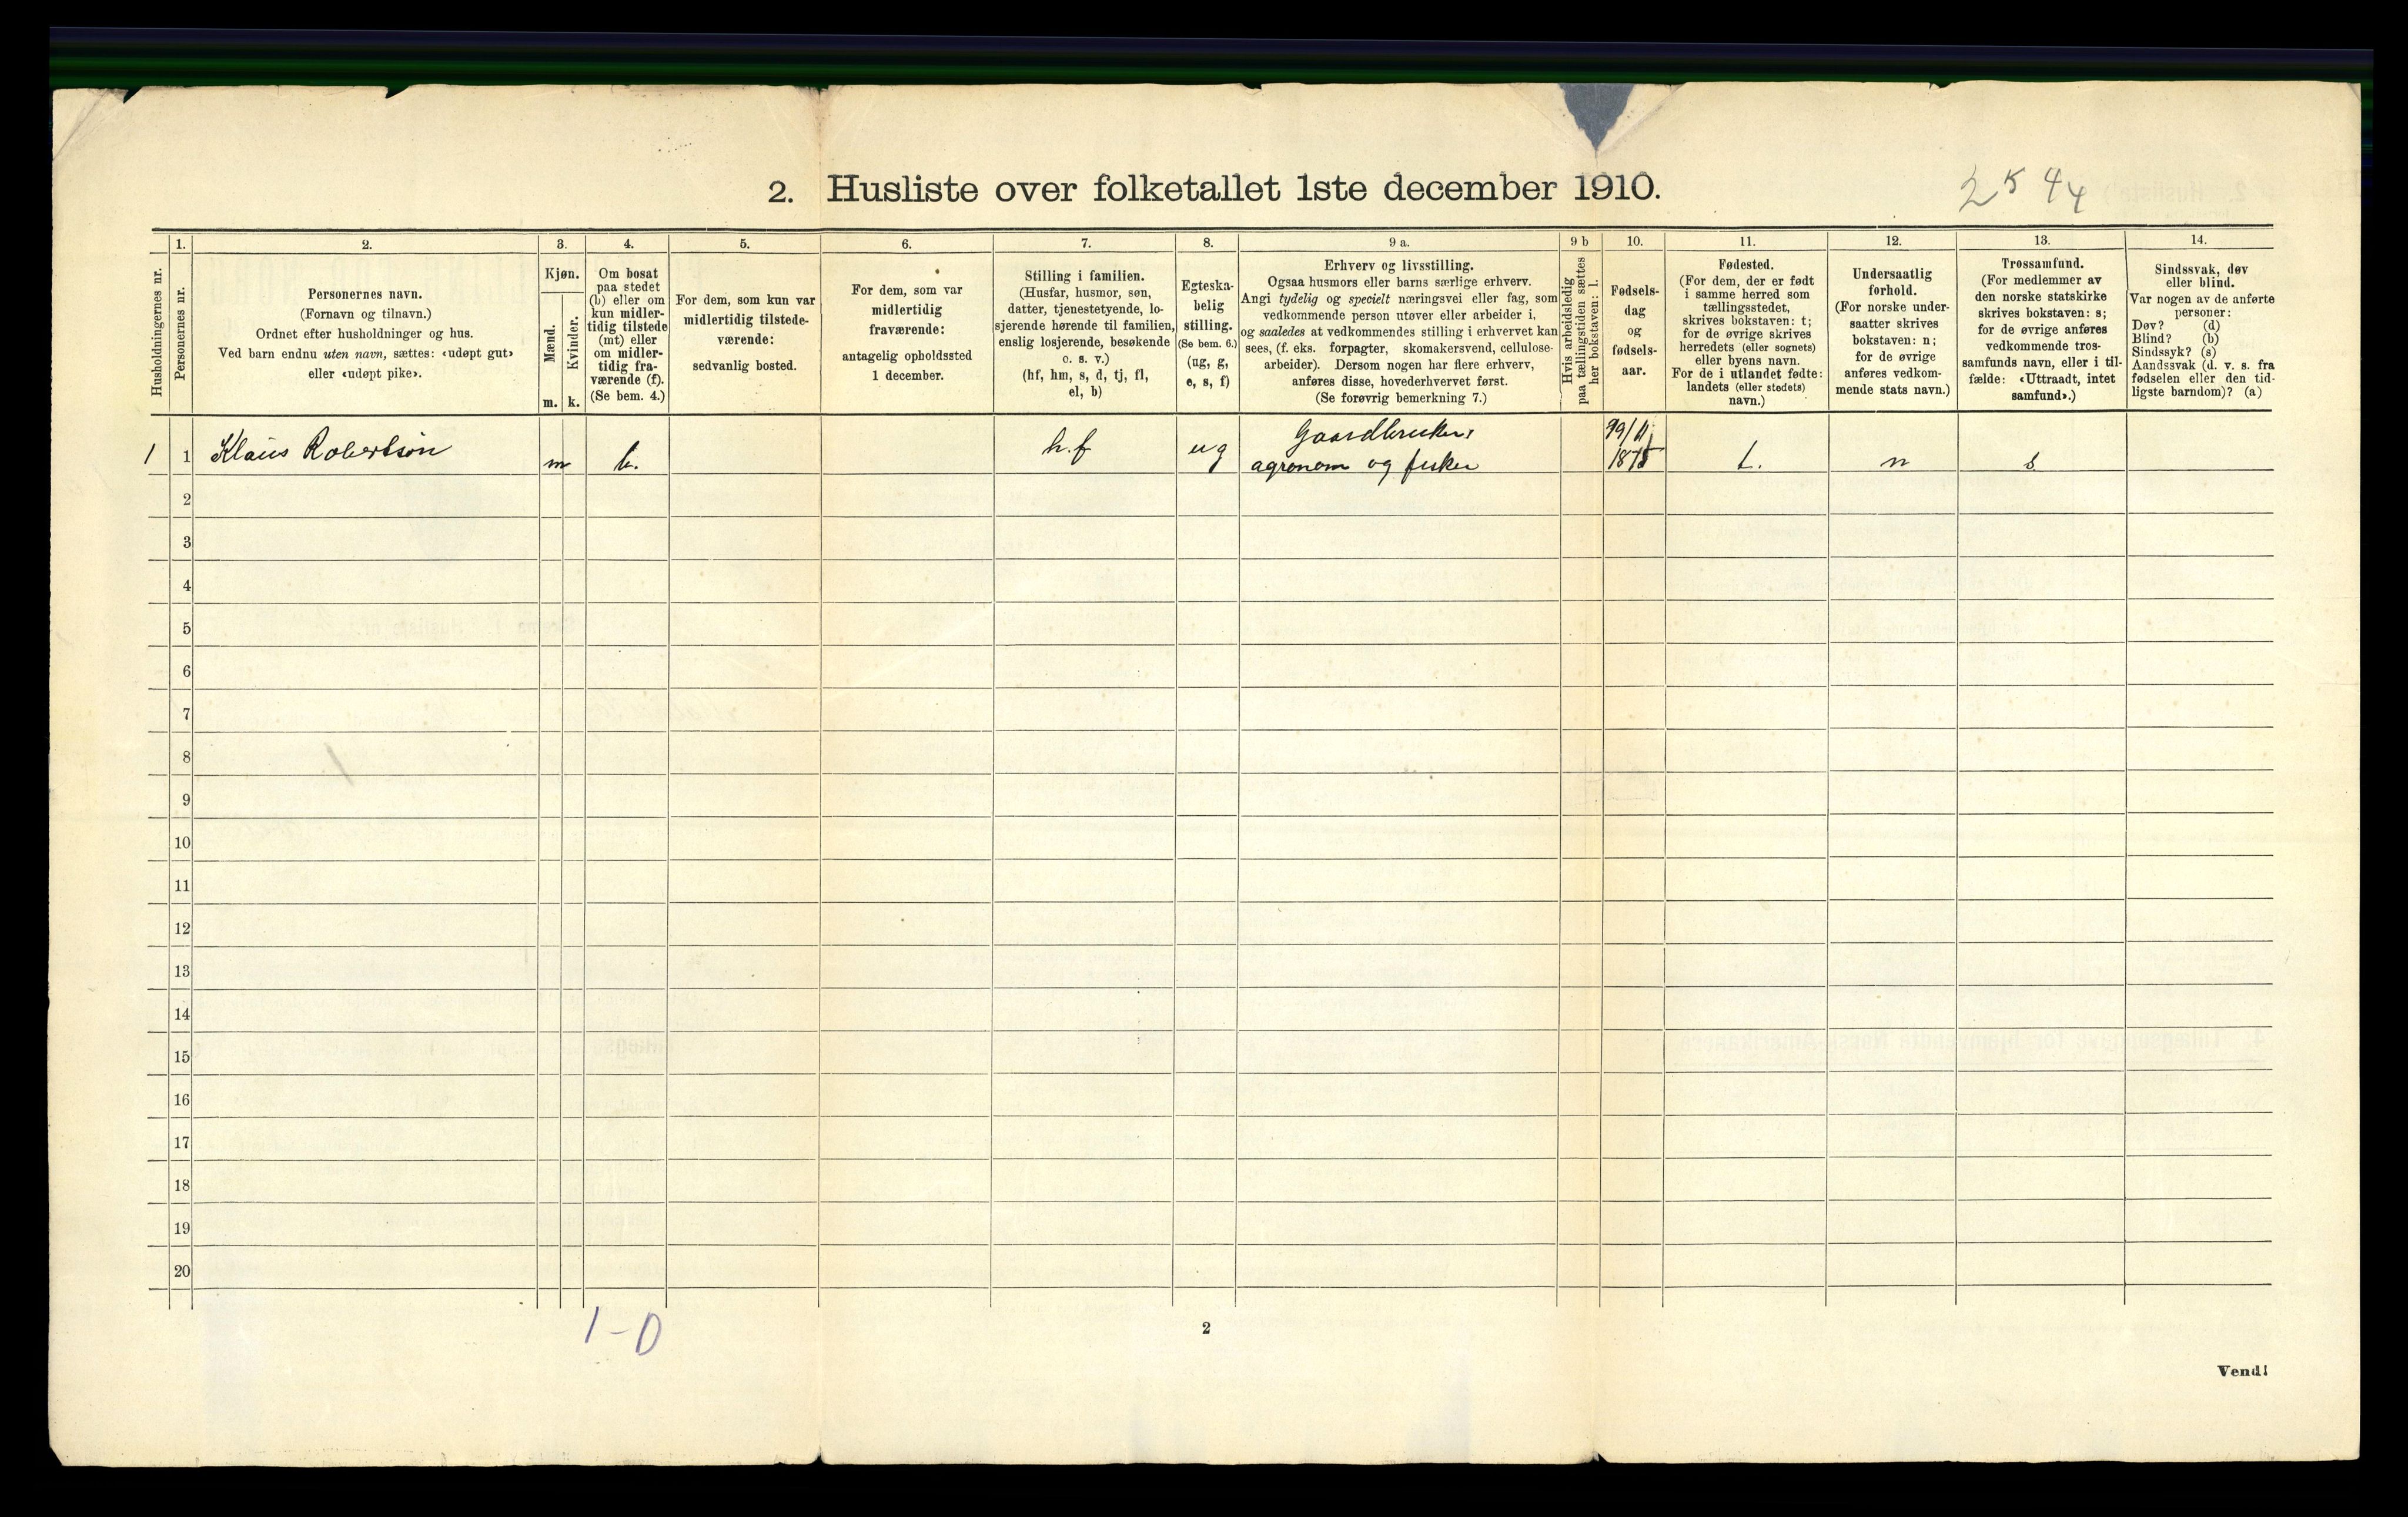 2. Husliste over folketallet 1ste december 1910.
1. 2. 3. 4. 5. 6. 7. 8. 9 a. 9 b 10. 11. 12. 13. 14.
Husholdningernes nr.
Personernes nr.
Personernes navn.
(Fornavn og tilnavn.)
Ordnet efter husholdninger og hus.
Ved barn endnu uten navn, sættes: «udøpt gut»
eller «udøpt pike».
Kjøn.
Mænd.
Kvinder.
m. k.
Om bosat
paa stedet
(b) eller om
kun midler-
tidig tilstede
(mt) eller
om midler-
tidig fra-
værende (f).
(Se bem. 4.)
For dem, som kun var
midlertidig tilstede-
værende:
sedvanlig bosted.
For dem, som var
midlertidig
fraværende:
antagelig opholdssted
1 december.
Stilling i familien.
(Husfar, husmor, søn,
datter, tjenestetyende, lo-
sjerende hørende til familien,
enslig losjerende, besøkende
o. s. v.)
(hf, hm, s, d, tj, fl,
el, b)
Egteska-
belig
stilling.
(Se bem. 6.)
(ug, g,
e, s, f)
Erhverv og livsstilling.
Ogsaa husmors eller barns særlige erhverv.
Angi tydelig og specielt næringsvei eller fag, som
vedkommende person utøver eller arbeider i,
og saaledes at vedkommendes stilling i erhvervet kan
sees, (f. eks. forpagter, skomakersvend, cellulose-
arbeider). Dersom nogen har flere erhverv,
anføres disse, hovederhvervet først.
(Se forøvrig bemerkning 7.)
Hvis arbeidsledig
paa tællingstiden sættes
her bokstaven: l.
Fødsels-
dag
og
fødsels-
aar.
Fødested.
(For dem, der er født
i samme herred som
tællingsstedet,
skrives bokstaven: t;
for de øvrige skrives
herredets (eller sognets)
eller byens navn.
For de i utlandet fødte:
landets (eller stedets)
navn.)
Undersaatlig
forhold.
(For norske under-
saatter skrives
bokstaven: n;
for de øvrige
anføres vedkom-
mende stats navn.)
Trossamfund.
(For medlemmer av
den norske statskirke
skrives bokstaven: s;
for de øvrige anføres
vedkommende tros-
samfunds navn, eller i til-
fælde: «Uttraadt, intet
samfund».)
Sindssvak, døv
eller blind.
Var nogen av de anførte
personer:
Døv? (d)
Blind? (b)
Sindssyk? (s)
Aandssvak (d. v. s. fra
fødselen eller den tid-
ligste barndom)? (a)
1 1 Klaus Robertson m b. h.f ug Gaardbruker,
agronom og fisker 1875 t. n s
2
3
4
5
6
7
8
9
10
11
12
13
14
15
16
17
18
19
20
1-0
2
Vend!